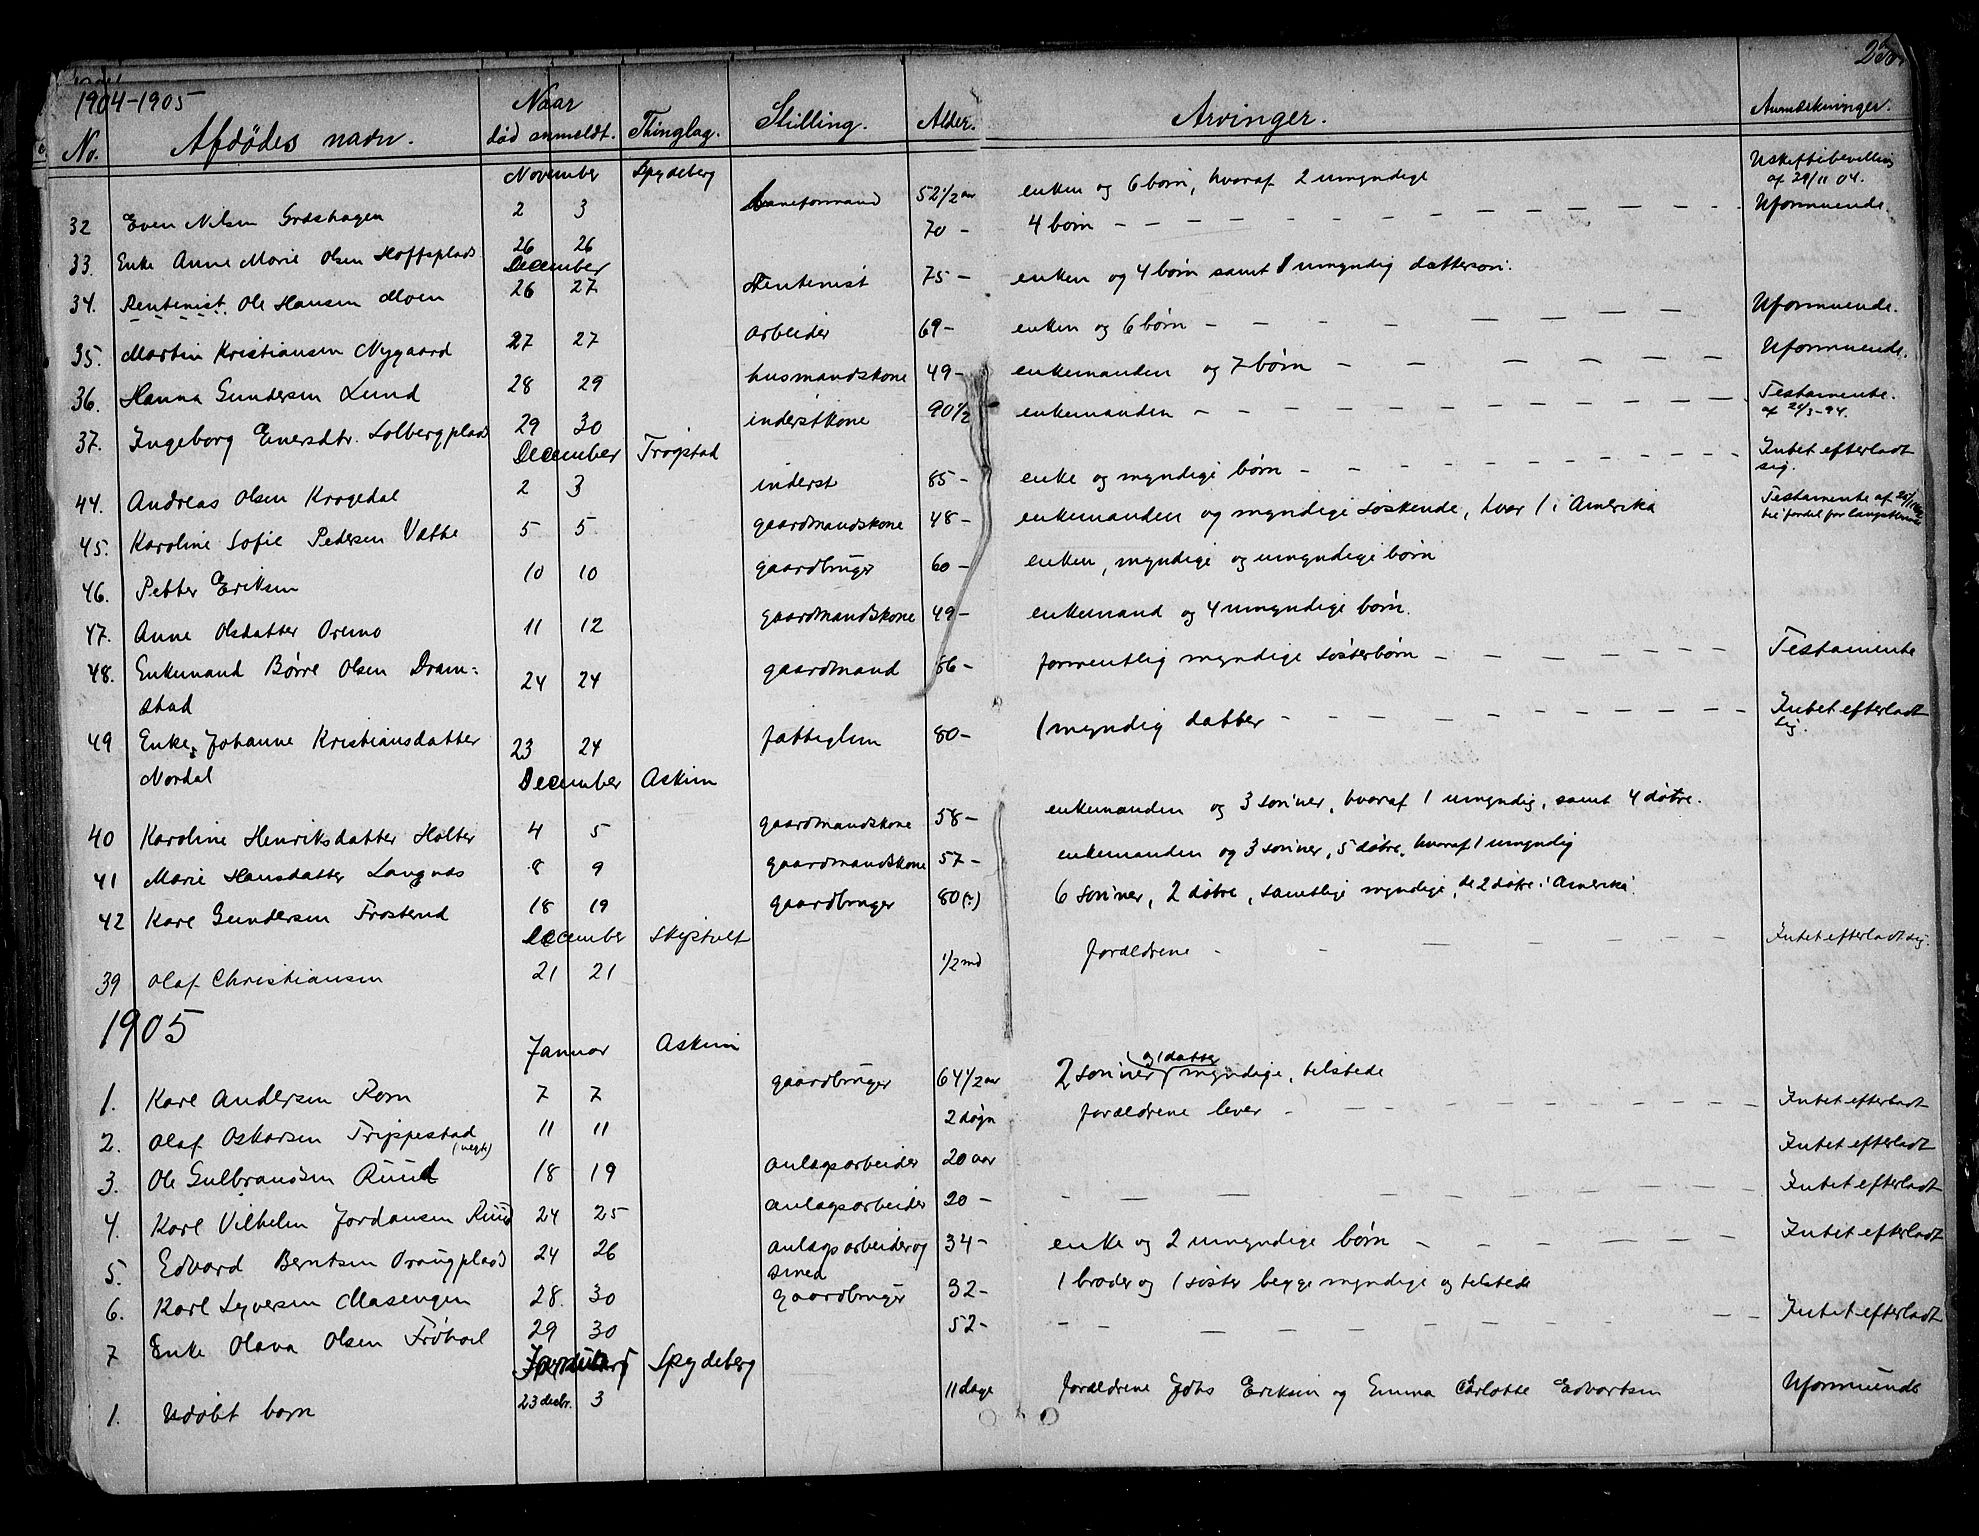 1904-1905
No. Afdödes navn. Naar död anmeldt. Thinglag. Stilling. Alder. Arvinger. Anmærkninger.
November Spydeberg
32 Even Nilsen 2 3 baneformand 52 1/2 aar enken og 6 börn, hvoraf 2 umyndige Uskiftebevilling af 29/11 04.
33. Enke Anne Marie Olsen Hoffsplads 26 26 70 - 4 börn - - - Uformuende.
December
34. Rentenist Ole Hansen Moen 26 27 Rentenist 75 - enken og 4 börn samt 1 umyndig dattersön.
35. Martin Kristiansen Nygaard 27 27 arbeider 69 - enken og 6 börn - - - Uformuende.
36. Hanna Gundersen Lund 28 29 husmandskone 49 - enkemanden og 7 börn - - - Uformuende.
37. Ingeborg Enersdtr. Solbergplads 29 30 inderstkone 90 1/2 enkemanden - - - Testamente.
December Trögstad
44. Andreas Olsen Krogedal 2 3 inderst 85 - enke og myndige börn - - - Intet efterladt sig.
45. Karoline Sofie Pedersen Vatne 5 5 gaardmandskone 48 - enkemanden og myndige söskende, hvor 1 i Amerika Testamente af
46. Petter Eriksen 10 10 gaardbruger 60 - enken, myndige og umyndige börn
47. Anne Olsdatter Oremo 11 12 gaardmandskone 49 - enkemand og 4 umyndige börn.
48. Enkemand Börre Olsen Dram=
stad 24 24 gaardmand 86 - formentlig myndige sösterbörn - - - Testamente
49 Enke, Johanne Kristiansdatter
Nordal 23 24 fattiglem 80 - 1 myndig datter - - - Intet efterladt sig.
December Askim
40 Karoline Henriksdatter Holter 4 5 gaardmandskone 58 - enkemanden og 3 sönner, hvoraf 1 umyndig, samt 4 dötre.
41 Marie Hansdatter Langnes 8 9 gaardmandskone 57 - enkemanden og 3 sönner, 5 dötre, hvoraf 1 umyndig
42 Karl Gundersen Frosterud 18 19 gaardbruger 80 (?) 6 sönner, 2 dötre, samtlige myndige, de 2 dötre i Amerika
December Skiptvet
39 Olaf Christiansen 21 21 1/2 md Forældrene - - - Intet efterladt sig.
1905
Januar Askim
1. Karl Andersen Rom 7 7 gaardbruger 64 1/2 aar 2 sönner og 1 datter myndige, tilstede
2. Olaf Oskarsen Trippestad 11 11 2 dögn Forældrene lever - - - Intet efterladt
3. Ole Gulbrandsen Ruud 18 19 anlægsarbeider 20 aar Intet efterladt
4. Karl Vilhelm Jordansen Ruud 24 25 anlægsarbeider 20 - - - - Intet efterladt
5. Edvard Berntsen Ovaugplads 24 26 anlægsarbeider og smed 34 - enke og 2 umyndige börn - - - Intet efterladt
6. Karl Syversen Masengen 28. 30 gaardbruger 32 - 1 broder og 1 söster begge myndige og tilstede
7 Enke Olava Olsen Fröhoel 29 30 52 - - - - Intet efterladt
Januar Spydeberg
1. Udöbt barn 23 decbr. 3 11 dage Forældrene Johs Eriksen og Emma Carlotte Edvartsen Uformuende